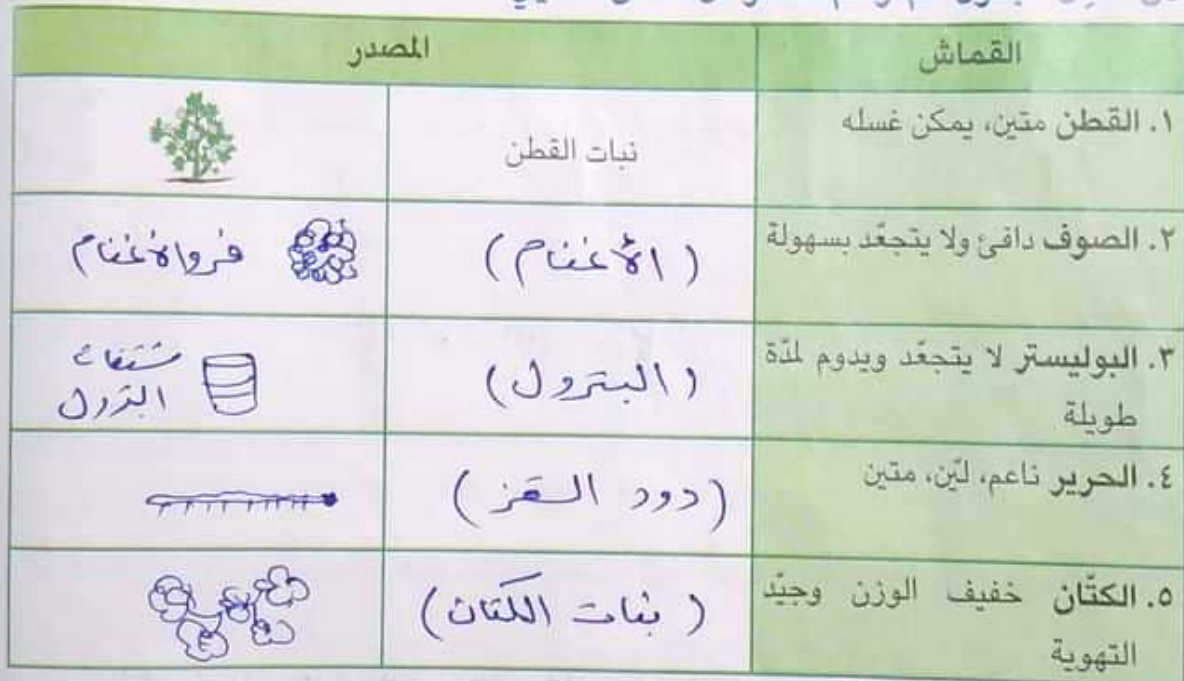 القماش
المصدر
١. القطن متين، يمكن غسله
نبات القطن
٢. الصوف دافئ ولا يتجعّد بسهولة
(الأغنام)
فرو الأغنام
٣. البوليستر لا يتجعّد ويدوم لمدّة
طويلة
(البترول)
البترول
٤. الحرير ناعم، ليّن، متين
(دود القز)
٥. الكتّان خفيف الوزن وجيّد
التهوية
(نبات الكتان)